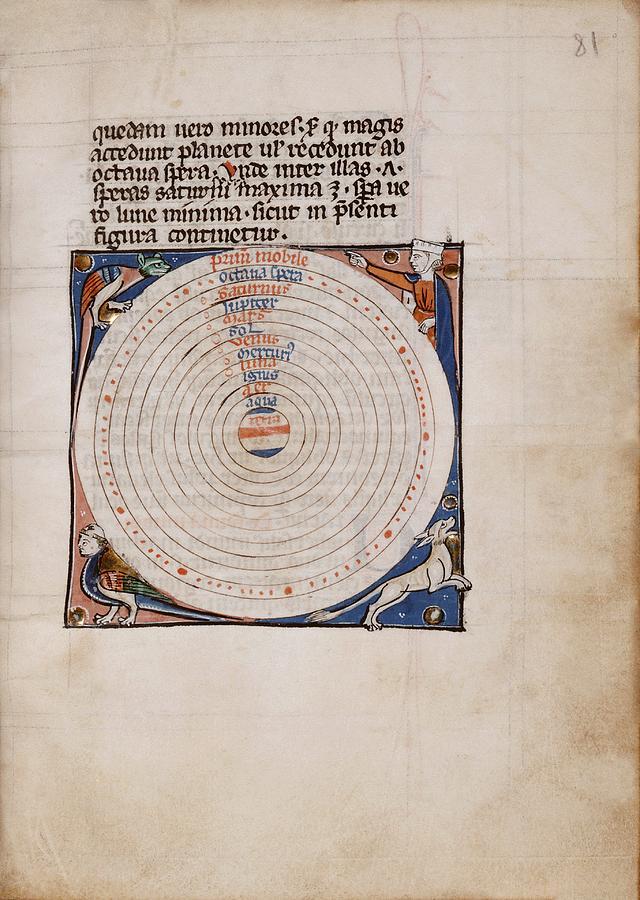 81
quedam uero minores. ⁊ q magis
accedunt planete ul' recedunt ab
octaua spera. Vnde inter illas .A.
speras saturni maxima ⁊ . spa ue
ro lune minima . sicut in psenti
figura continetur.
prim mobile
octaua spera
saturnus
Jupiter
mars
sol
venus
mercuri⁹
luna
ignis
aer
aqua
terra